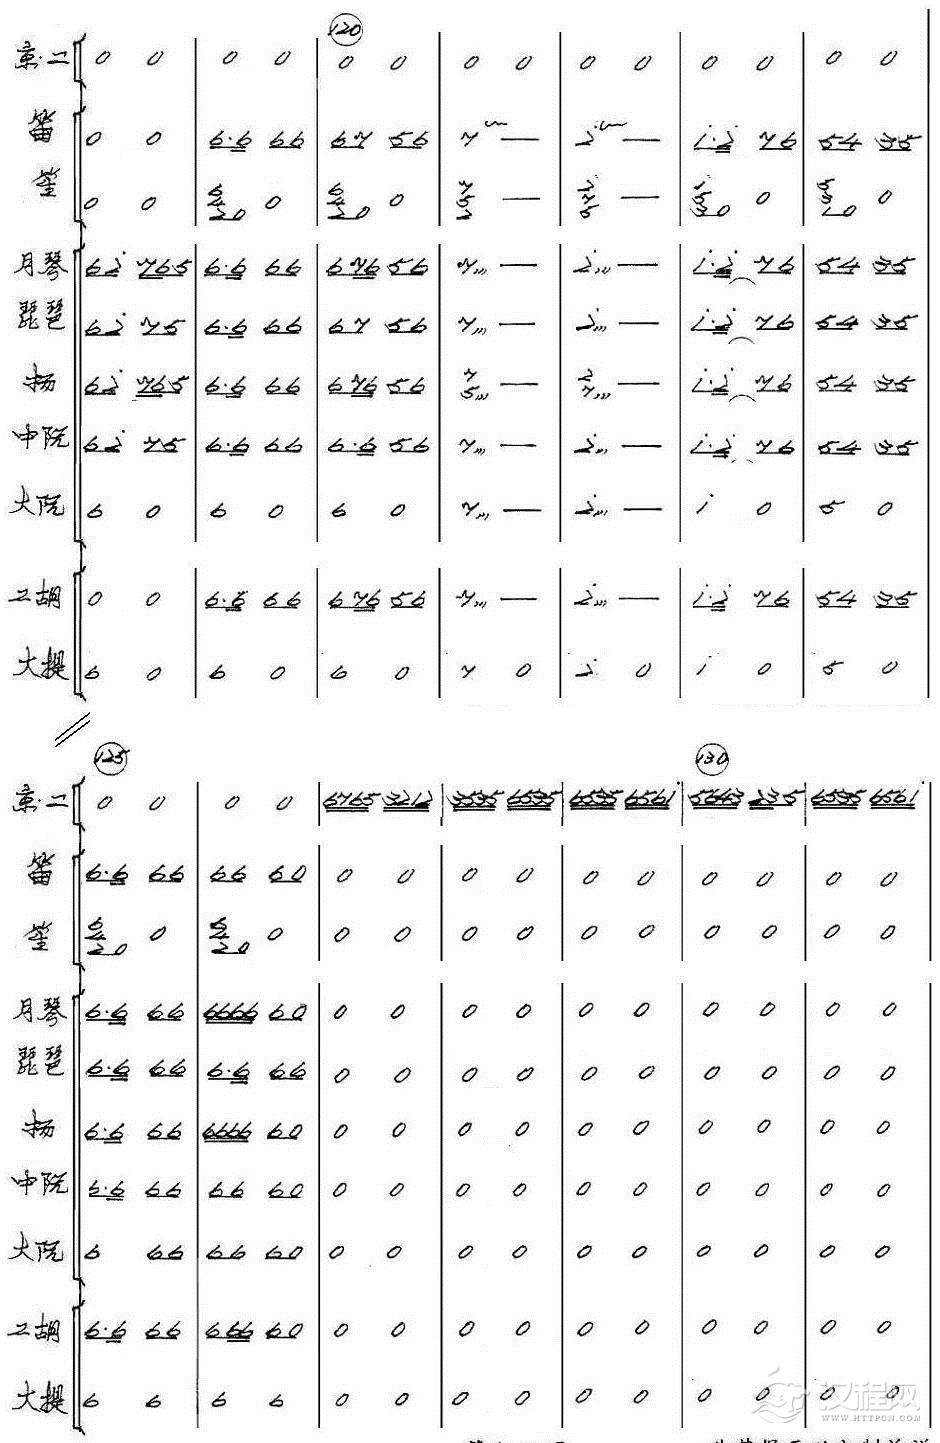 120
京·二 0 0 | 0 0 | 0 0 | 0 0 | 0 0 | 0 0 | 0 0
笛 0 0 | 6·6 66 | 67 56 | 7 — | 2̇ — | 1̇·2̇ 76 | 54 35
笙 0 0 | 0 | 0 | — | — | 0 | 0
月琴 62̇ 765 | 6·6 66 | 676 56 | 7 — | 2̇ — | 1̇·2̇ 76 | 54 35
琵琶 62̇ 75 | 6·6 66 | 67 56 | 7 — | 2̇ — | 1̇·2̇ 76 | 54 35
扬 62̇ 765 | 6·6 66 | 676 56 | 7 5 — | 2̇ 7 — | 1̇·2̇ 76 | 54 35
中阮 62̇ 75 | 6·6 66 | 6·6 56 | 7 — | 2̇ — | 1̇·2̇ 76 | 54 35
大阮 6 0 | 6 0 | 6 0 | 7 — | 2̇ — | 1̇ 0 | 5 0
二胡 0 0 | 6·6 66 | 676 56 | 7 — | 2̇ — | 1̇·2̇ 76 | 54 35
大提 6 0 | 6 0 | 6 0 | 7 0 | 2̇ 0 | 1̇ 0 | 5 0
125 130
京·二 0 0 | 0 0 | 6765 3212 | 3535 6535 | 6535 6561̇ | 5643 235 | 6535 6561̇
笛 6·6 66 | 66 60 | 0 0 | 0 0 | 0 0 | 0 0 | 0 0
笙 0 | 0 | 0 0 | 0 0 | 0 0 | 0 0 | 0 0
月琴 6·6 66 | 6666 60 | 0 0 | 0 0 | 0 0 | 0 0 | 0 0
琵琶 6·6 66 | 6·6 66 | 0 0 | 0 0 | 0 0 | 0 0 | 0 0
扬 6·6 66 | 6666 60 | 0 0 | 0 0 | 0 0 | 0 0 | 0 0
中阮 6·6 66 | 66 60 | 0 0 | 0 0 | 0 0 | 0 0 | 0 0
大阮 6 66 | 66 60 | 0 0 | 0 0 | 0 0 | 0 0 | 0 0
二胡 6·6 66 | 666 60 | 0 0 | 0 0 | 0 0 | 0 0 | 0 0
大提 6 6 | 6 6 | 0 0 | 0 0 | 0 0 | 0 0 | 0 0
汉程网
WWW.HTTPCN.COM